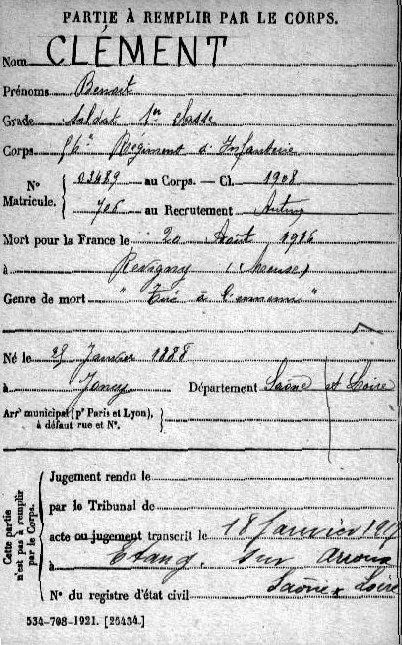 PARTIE À REMPLIR PAR LE CORPS.
Nom CLÉMENT
Prénoms Benoit
Grade Soldat 1er classe
Corps 56e Régiment d'Infanterie
N° Matricule. { 03489 au Corps. — Cl. 1908
706 au Recrutement Autun
Mort pour la France le 20 Août 1916
à Revigny (Meuse)
Genre de mort "Tué à l'ennemi"
Né le 25 Janvier 1888
à Joncy Département Saône et Loire
Arrt municipal (pr Paris et Lyon),
à défaut rue et N°.
Cette partie n'est pas à remplir par le Corps.
Jugement rendu le
par le Tribunal de
acte ou jugement transcrit le 18 Janvier
à Etang sur Arroux
Saône & Loire
N° du registre d'état civil
534-708-1921. [26434.]